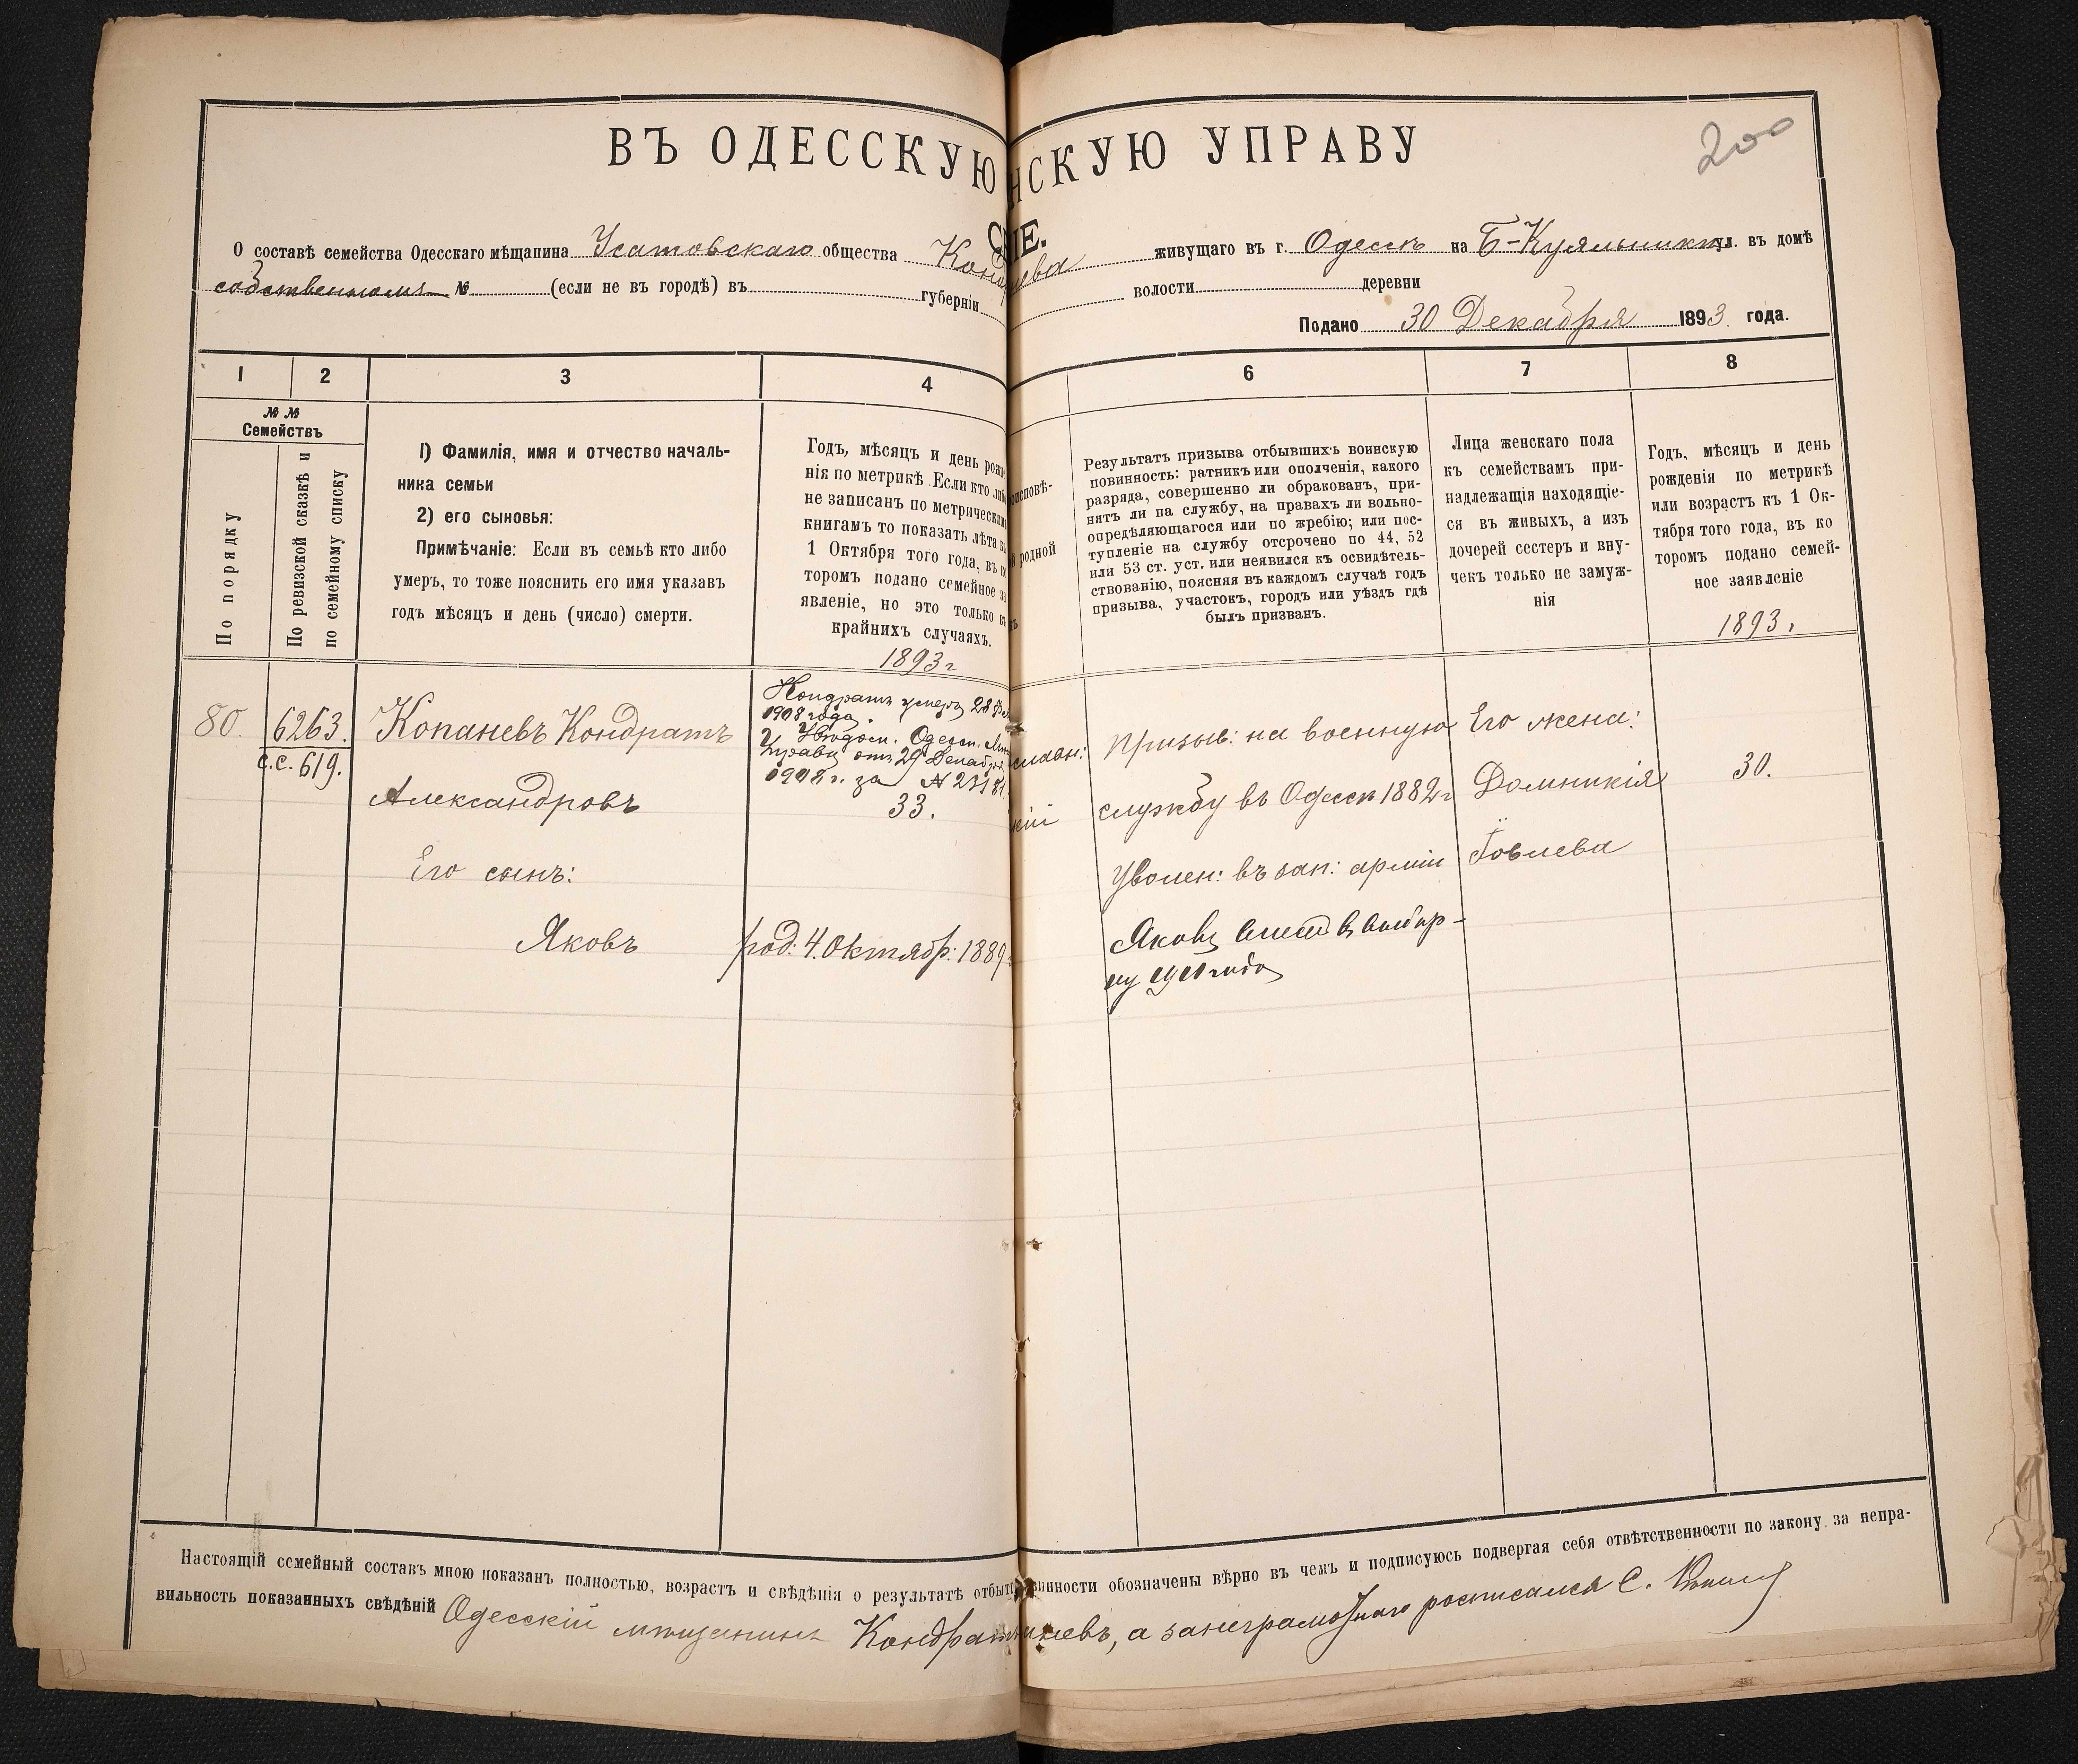 200
ВЪ ОДЕССКУЮ НСКУЮ УПРАВУ
ІЕ.
О составѣ семейства Одесскаго мѣщанина Усатовскаго общества живущаго въ г. Одессѣ на Б-Куяльникѣ ул. въ домѣ
собственномъ № (если не въ городѣ) въ губерніи волости деревни
Подано 30 Декабря 1893 года.
1 2 3 4 6 7 8
№ №
Семействъ
По порядку
По ревизской сказкѣ и
по семейному списку
1) Фамилія, имя и отчество началь-
ника семьи
2) его сыновья:
Примѣчаніе: Если въ семьѣ кто либо
умеръ, то тоже пояснить его имя указавъ
годъ мѣсяцъ и день (число) смерти.
Годъ, мѣсяцъ и день рожде
нія по метрикѣ. Если кто либо
не записанъ по метрическимъ
книгамъ то показать лѣта
1 Октября того года, въ ко
торомъ подано семейное за
явленіе, но это только въ
крайнихъ случаяхъ.
1893 г
оисповѣ-
родной
Результатъ призыва отбывшихъ воинскую
повинность: ратникъ или ополченія, какого
разряда, совершенно ли обракованъ, при-
нятъ ли на службу, на правахъ ли вольно-
опредѣляющагося или по жребію; или пос-
тупленіе на службу отсрочено по 44, 52
или 53 ст. уст. или неявился къ освидѣтель-
ствованію, поясняя въ каждомъ случаѣ годъ
призыва, участокъ, городъ или уѣздъ гдѣ
былъ призванъ.
Лица женскаго пола
къ семействамъ при-
надлежащія находящіе-
ся въ живыхъ, а изъ
дочерей сестеръ и вну-
чекъ только не замуж-
нія
Годъ, мѣсяцъ и день
рожденія по метрикѣ
или возрастъ къ 1 Ок-
тября того года, въ ко
торомъ подано семей-
ное заявленіе
1893 г
80. 6263.
с.с. 619.
Копаневъ Кондратъ
Александровъ
Его сынъ:
Яковъ
Кондратъ умеръ 28
1908 года.
Одесск.
Управы отъ 29 Декабря
1908 г. за №
33.
род: 4. Октябр: 1889
кій
Призыв: на военную
службу въ Одессѣ 1882 г
Уволен: въ зап: арміи
Яковъ
Его жена:
Домникія
Іовлева
30.
Настоящій семейный составъ мною показанъ полностью, возрастъ и свѣдѣнія о результатѣ отбыт инности обозначены вѣрно въ чемъ и подписуюсь подвергая себя отвѣтственности по закону за непра-
вильность показанныхъ свѣдѣній Одесскій мѣщанинъ Кондратъ невъ, а за неграмотнаго росписался С.